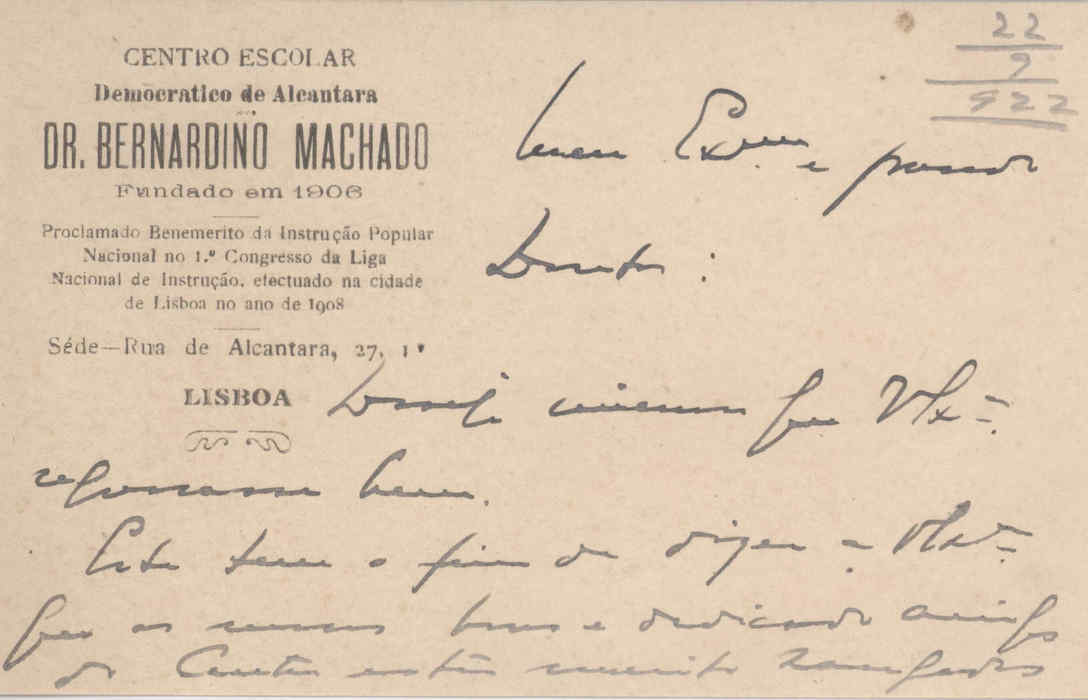 22
9
922
CENTRO ESCOLAR
Democratico de Alcantara
DR. BERNARDINO MACHADO
Fundado em 1906
Proclamado Benemerito da Instrução Popular
Nacional no 1.º Congresso da Liga
Nacional de Instrução, efectuado na cidade
de Lisboa no ano de 1908
Séde—Rua de Alcantara, 27, 1º
LISBOA
Meu Ex.mo e
Doutor :
Desejo que V. Ex.ª
bem.
Este tem o fim de dizer a V. Ex.ª
que os nossos bons e dedicado amigos
do Centro estão muito zangados